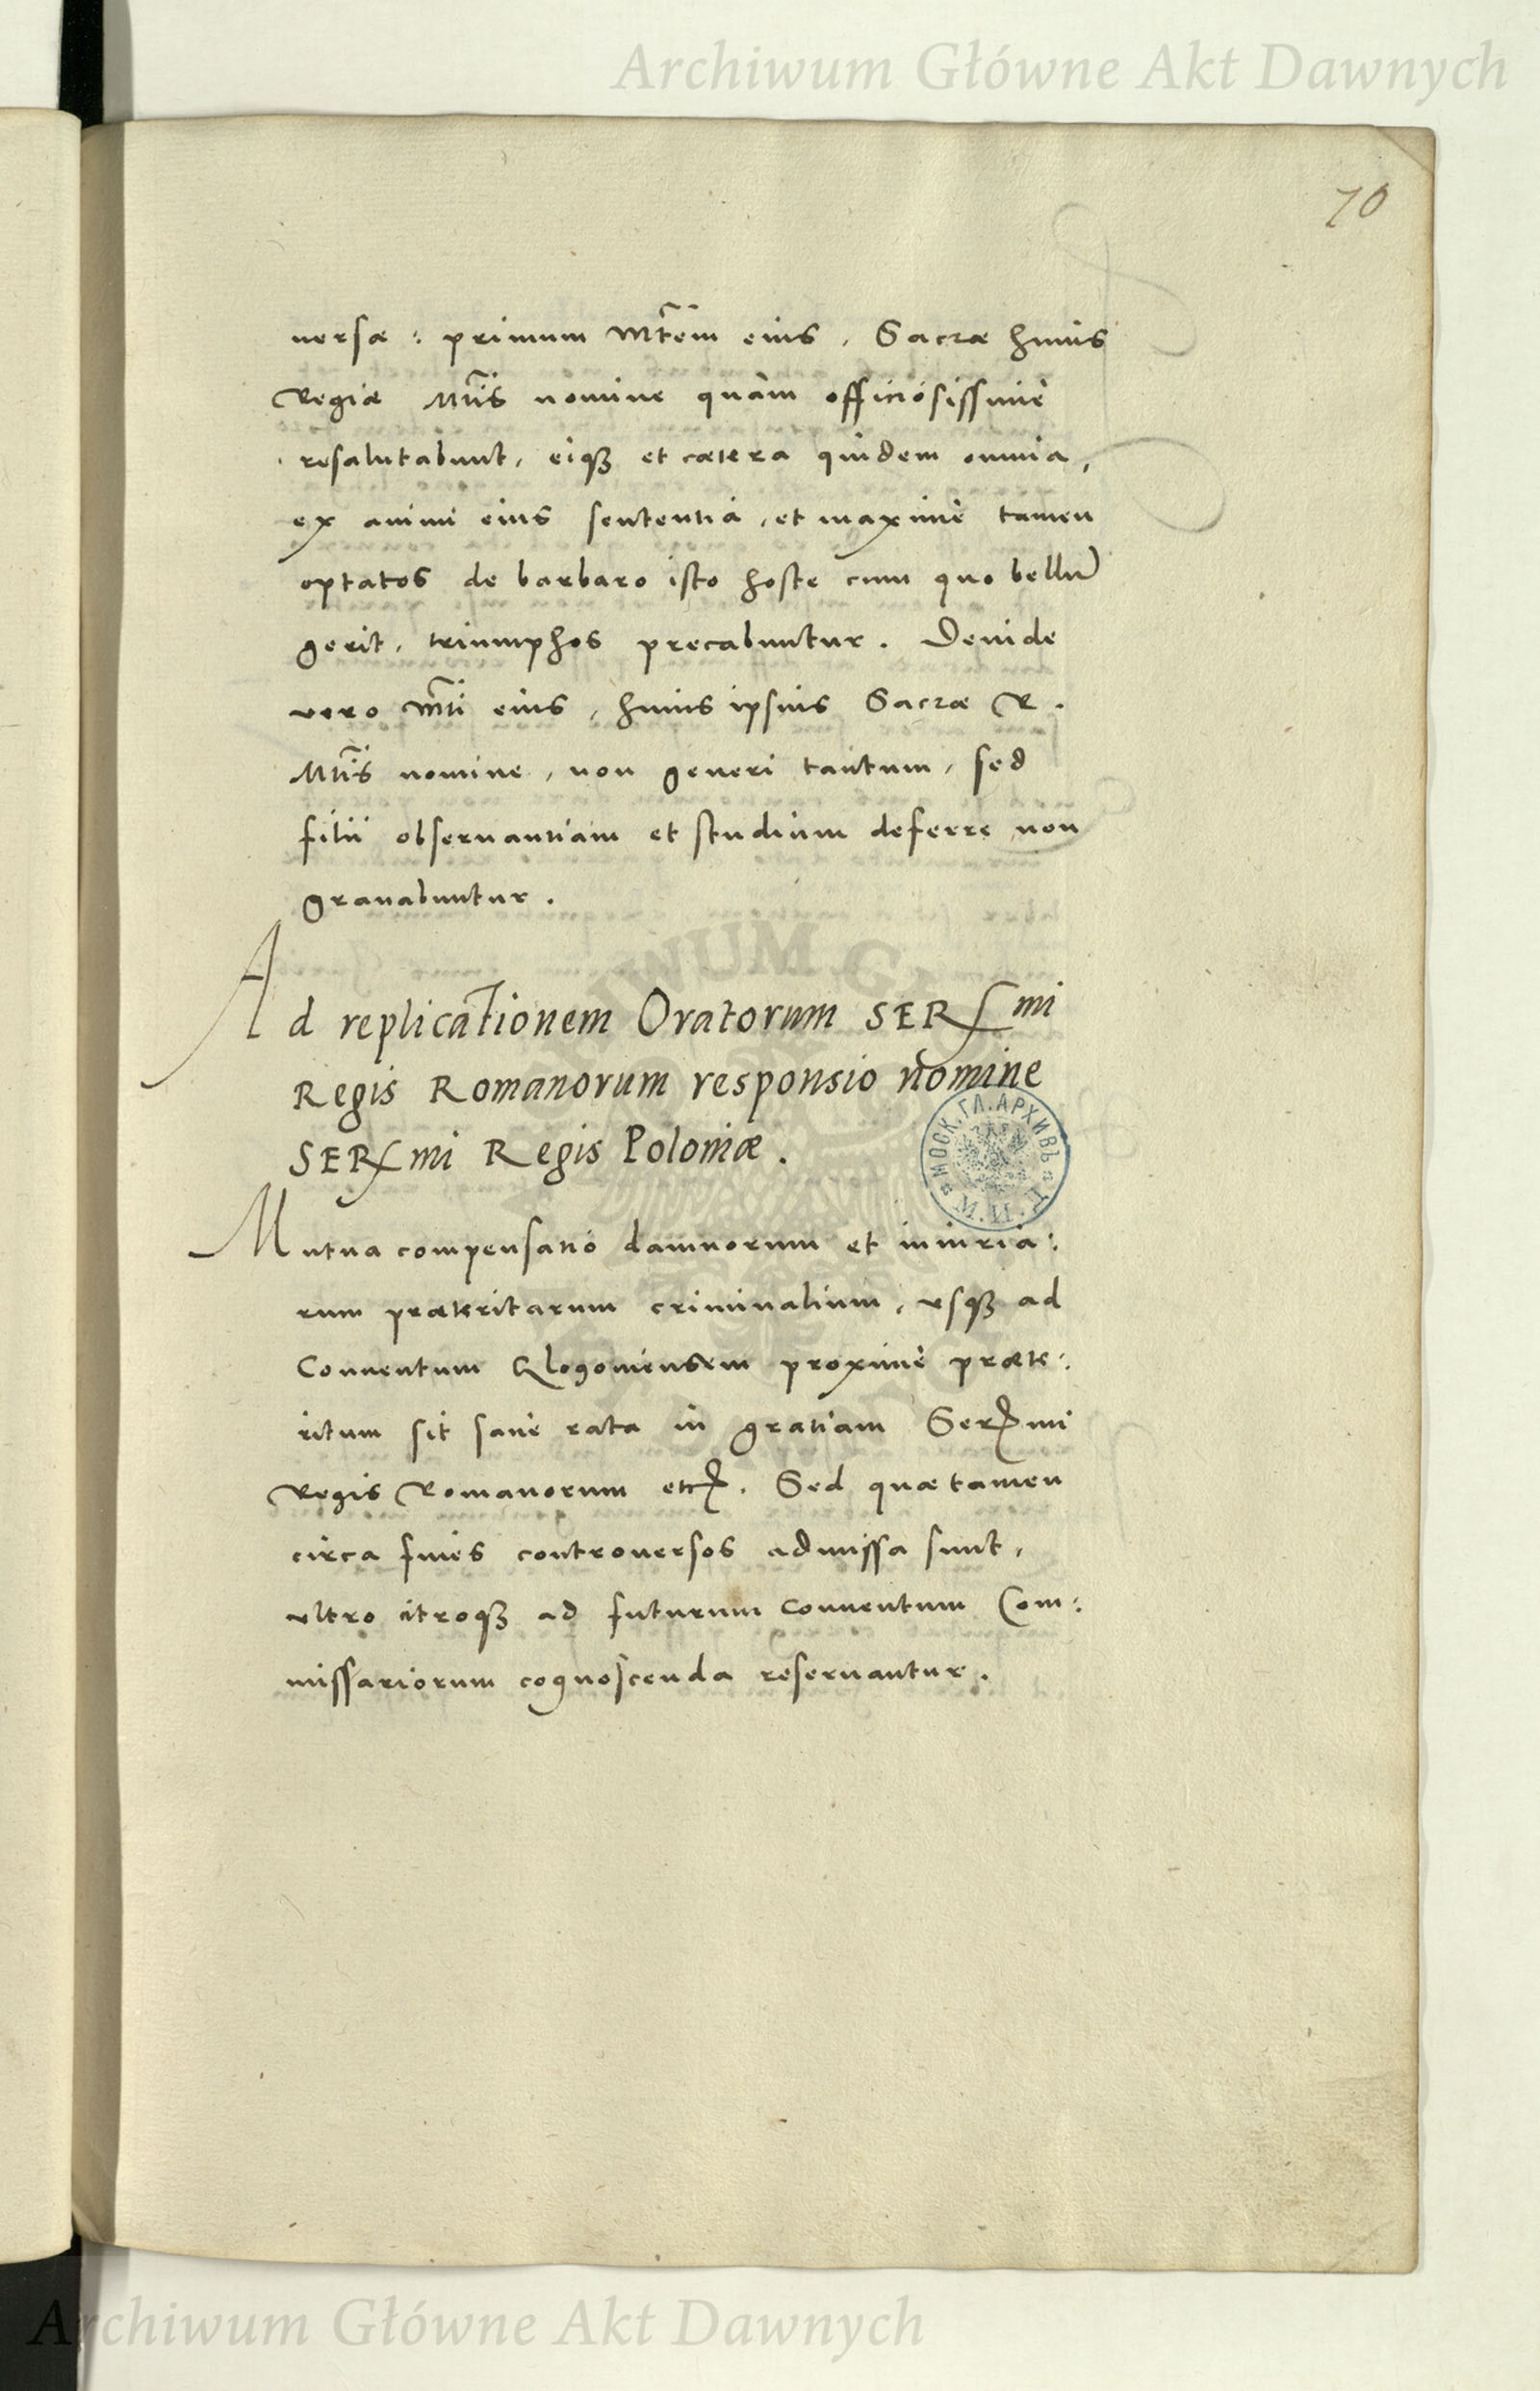 Archiwum Główne Akt Dawnych
70
uersæ : primum Mtem eius, Sacræ huius
Regiæ Mtis nomine quàm officiosissimè
resalutabunt, eiqꝫ et cætera quidem omnia,
ex animi eius sententia, et maximè tamen
optatos de barbaro isto hoste cum quo bellū
gerit, triumphos precabuntur. Deinde
vero Mti eius, huius ipsius Sacræ R.
Mtis nomine, non generi tantum, sed
filii obseruantiam et studium deferre non
grauabuntur.
Ad replicationem Oratorum SERmi
Regis Romanorum responsio nomine
SERmi Regis Poloniæ.
Mutua compensatio damnorum et iniuria:
rum præteritarum criminalium, vsqꝫ ad
Conuentum Glogouiensem proximè præte:
ritum sit sanè rata in gratiam Sermi
Regis Romanorum etc. Sed quæ tamen
circa fines controuersos admissa sunt,
vltro citroqꝫ ad futurum Conuentum Com:
missariorum cognoscenda reseruantur.
МОСК. ГЛ. АРХИВЪ
М. И. Д.
Archiwum Główne Akt Dawnych